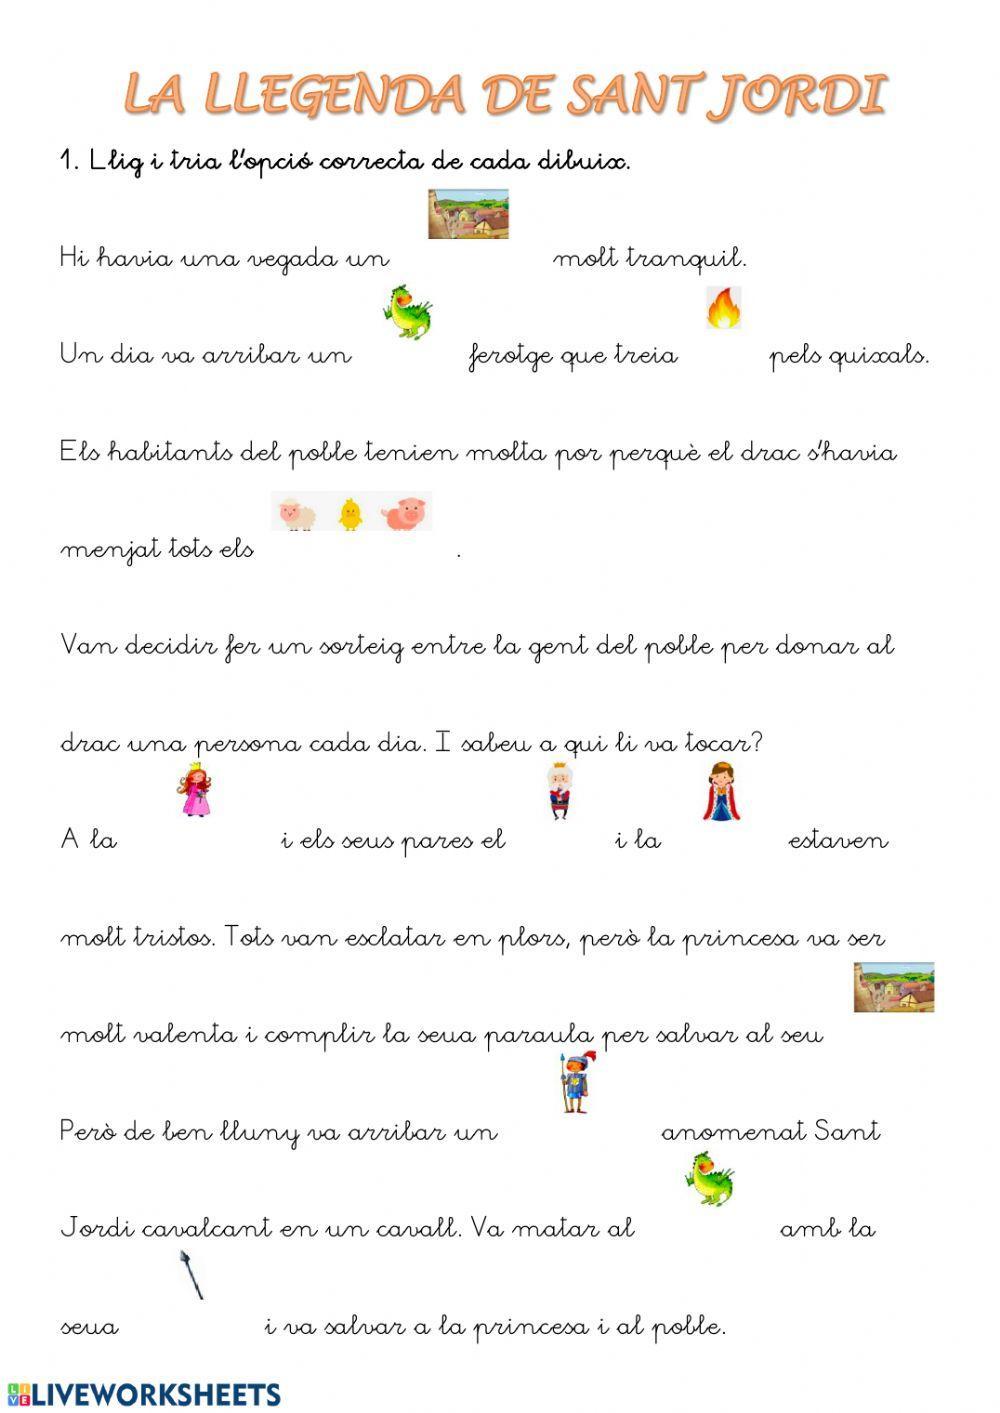 LA LLEGENDA DE SANT JORDI
1. Llig i tria l'opció correcta de cada dibuix.
Hi havia una vegada un molt tranquil.
Un dia va arribar un ferotge que treia pels quixals.
Els habitants del poble tenien molta por perquè el drac s'havia
menjat tots els .
Van decidir fer un sorteig entre la gent del poble per donar al
drac una persona cada dia. I sabeu a qui li va tocar?
A la i els seus pares el i la estaven
molt tristos. Tots van esclatar en plors, però la princesa va ser
molt valenta i complir la seua paraula per salvar al seu
Però de ben lluny va arribar un anomenat Sant
Jordi cavalcant en un cavall. Va matar al amb la
seua i va salvar a la princesa i al poble.
LIVE LIVEWORKSHEETS